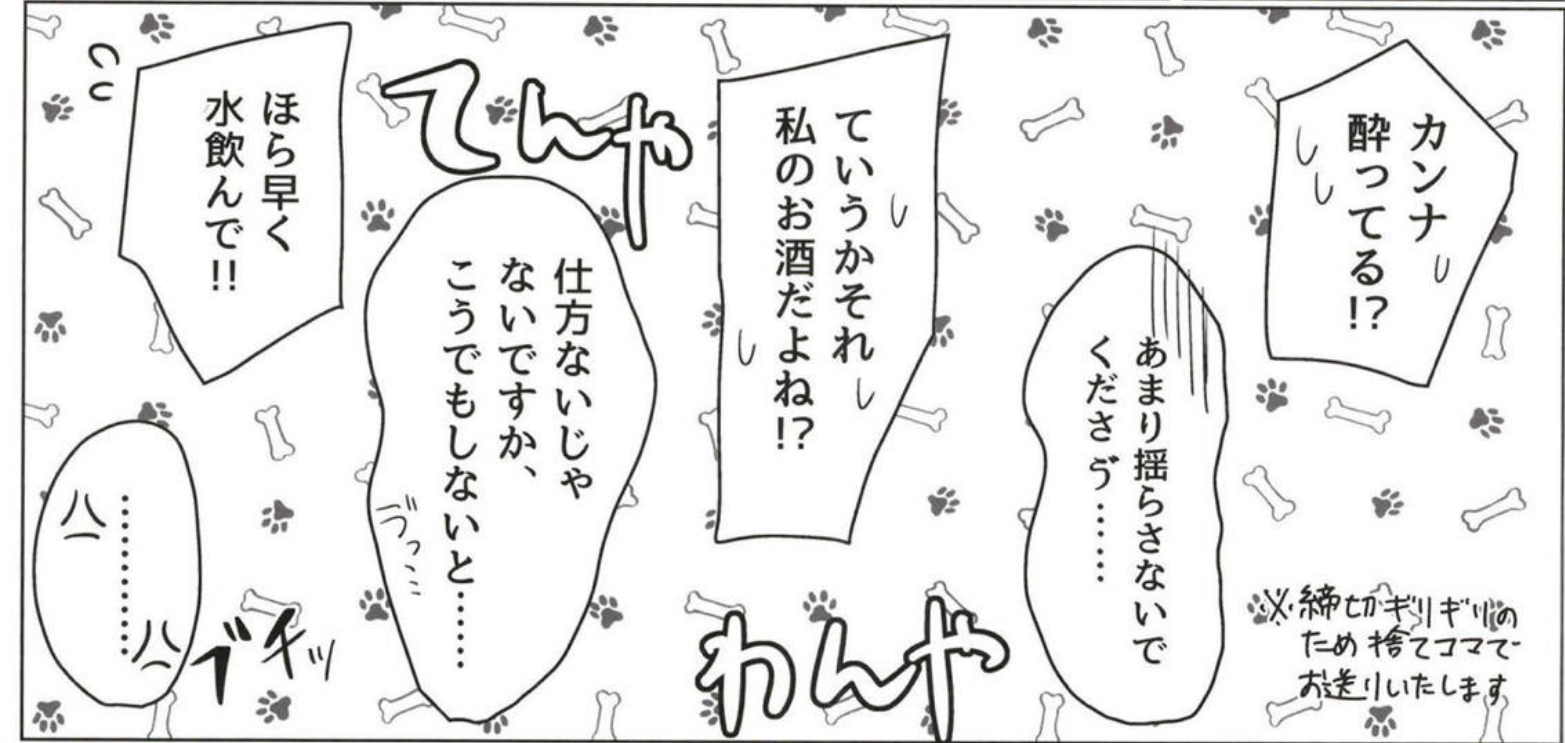 カンナ
酔ってる!?
あまり揺らさないで
くださゔ……
※締切ギリギリの
ため捨てコマで
お送りいたします
ていうかそれ
私のお酒だよね!?
わんや
てんや
仕方ないじゃ
ないですか、
こうでもしないと……
ゔっ…
ほら早く
水飲んで!!
…………
ブチッ